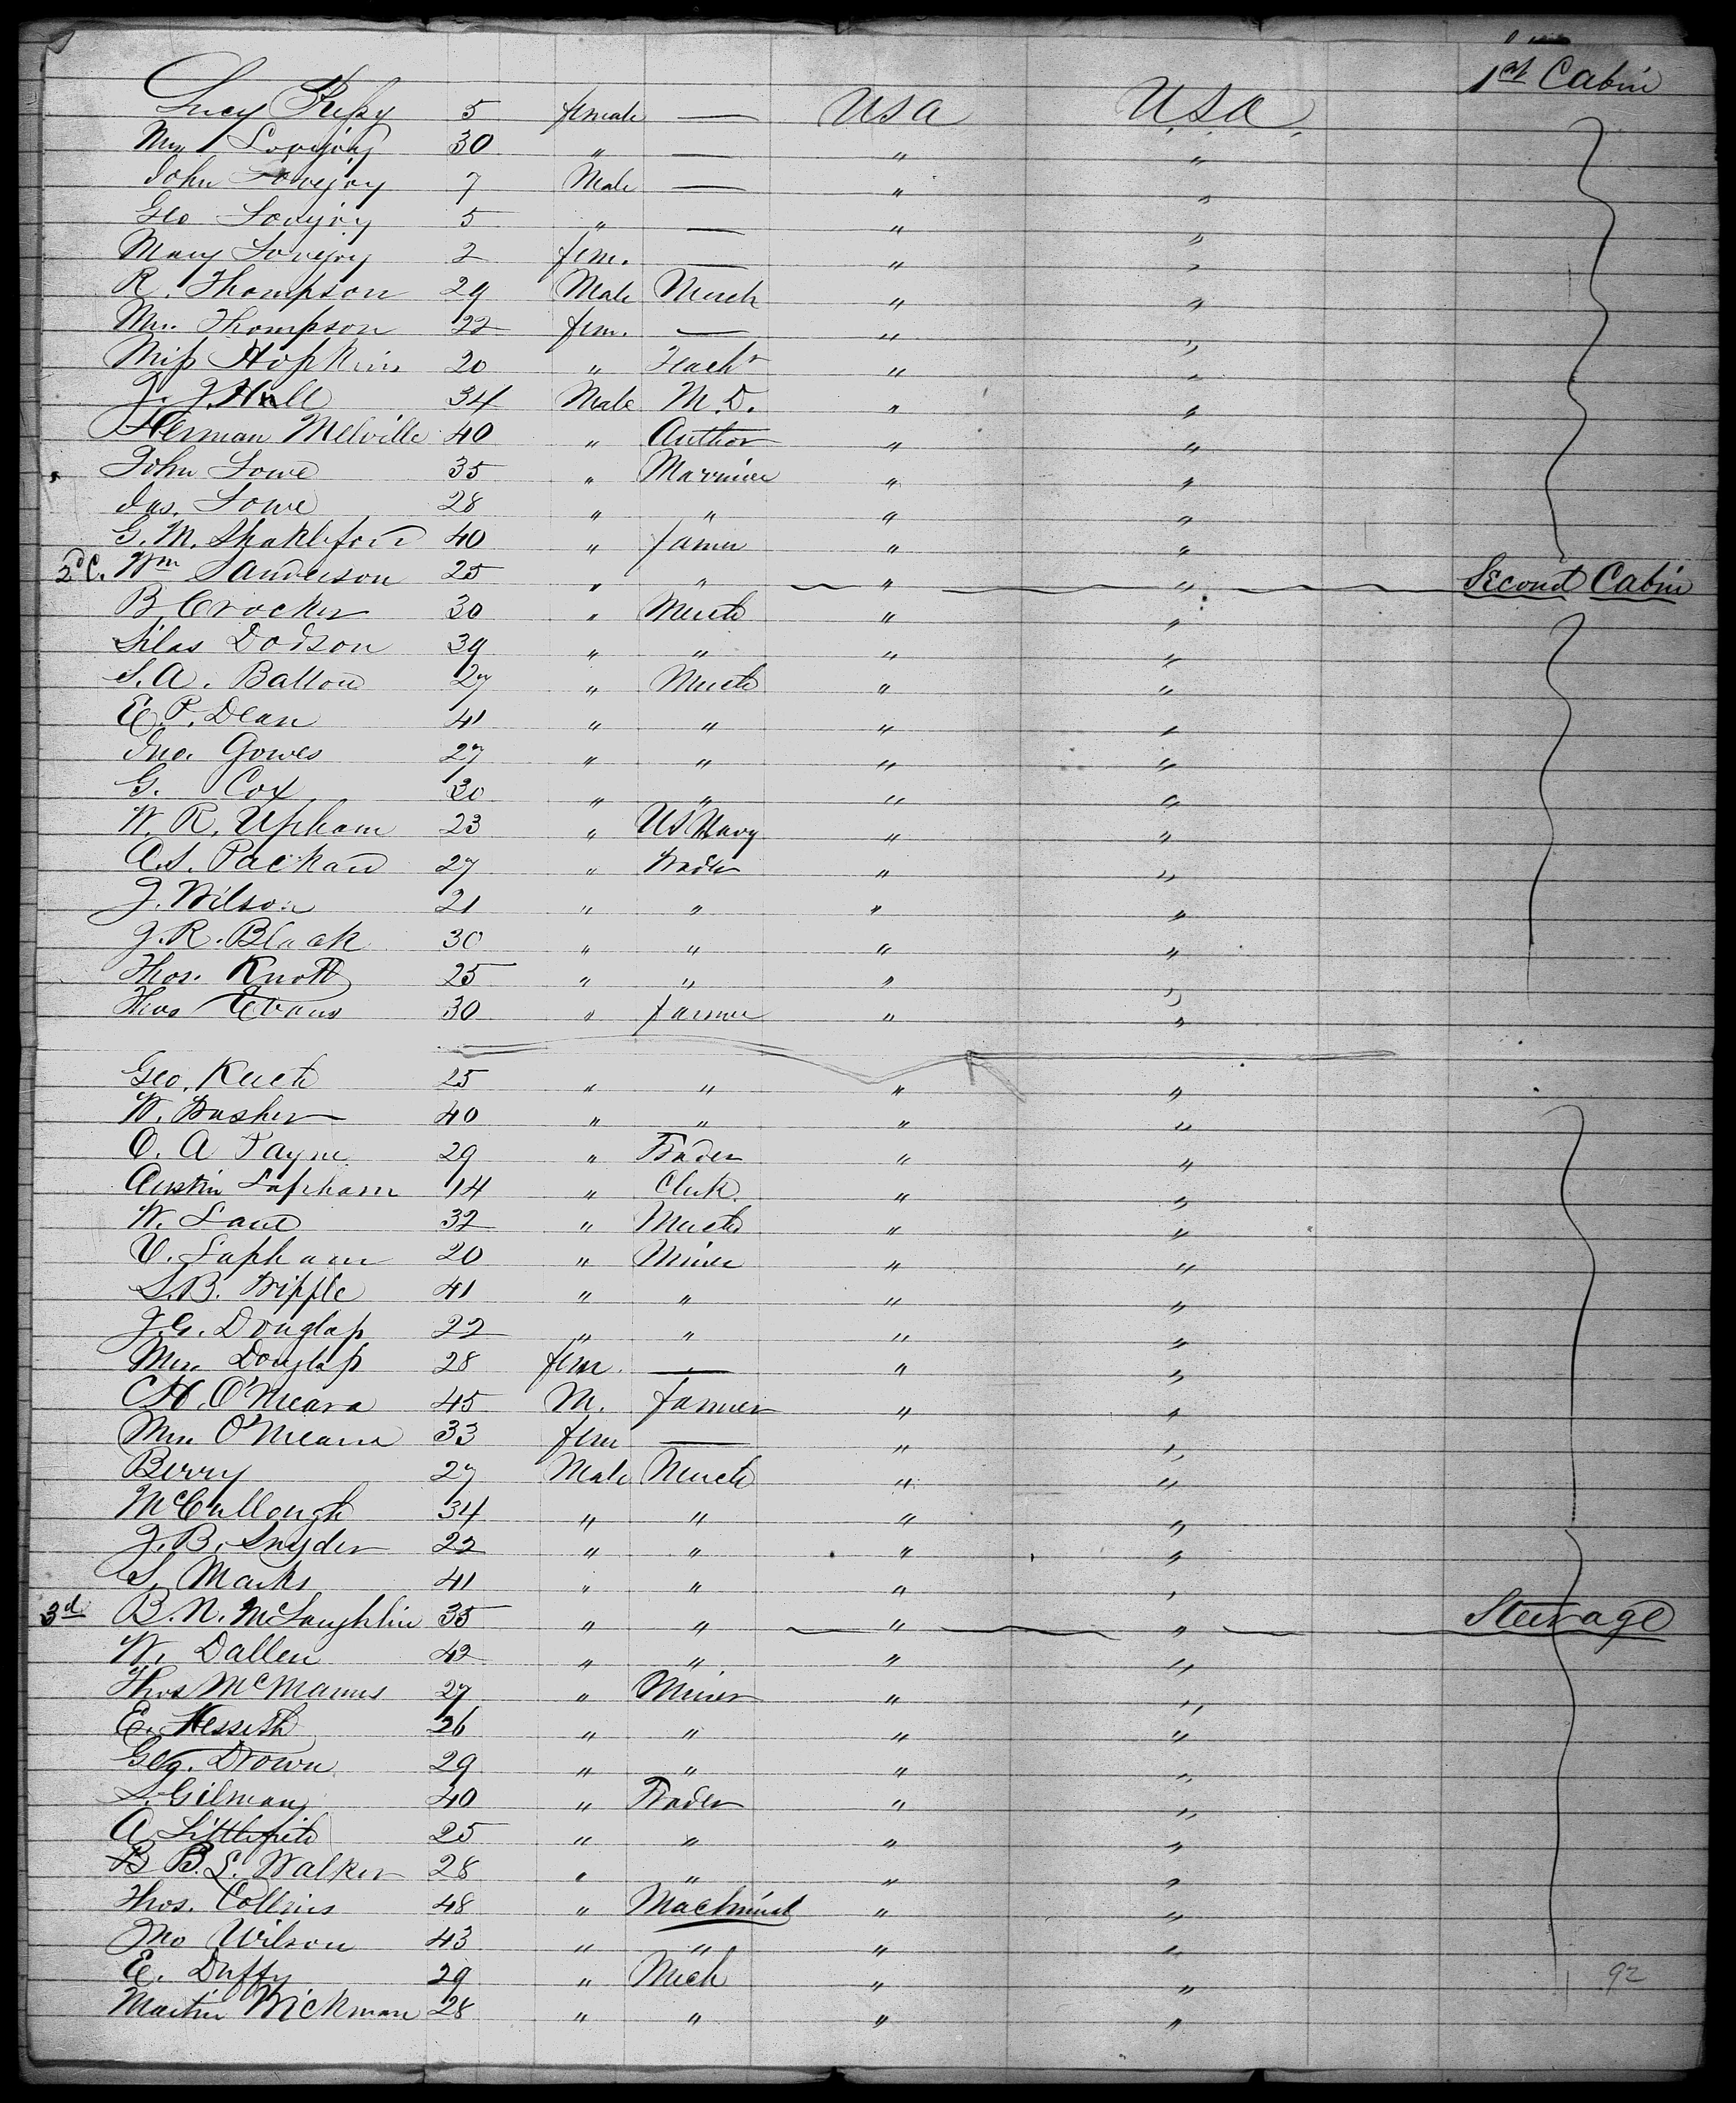 1st Cabin
Lucy 5 female — USA U.S.A.
Mrs Lovejoy 30 " — " "
John Lovejoy 7 Male — " "
Geo Lovejoy 5 " — " "
Mary Lovejoy 2 fem. — " "
R. Thompson 29 Male Merch " "
Mrs. Thompson 22 fem. — " "
Miss Hopkins 20 " Teachr " "
J. J. Hull 34 Male M.D. " "
Herman Melville 40 " Author " "
John Lowe 35 " Marriner " "
Jas. Lowe 28 " " " "
G. M. Shakleford 40 " farmer " "
2d C. Wm Sanderson 25 " " " " Second Cabin
B Crocker 30 " Merch " "
Silas Dodson 39 " " " "
S. A. Ballou 27 " Merch " "
E. P. Dean 41 " " " "
Jno. Gowes 27 " " " "
G. Cox 30 " " " "
W. R. Upham 23 " US Navy " "
A.S. Packard 27 " Trader " "
J. Wilson 21 " " " "
J. R. Black 30 " " " "
Thos. Knott 25 " " " "
Thos Evans 30 " farmer " "
Geo. 25 " " " "
W. 40 " " " "
O. A Payne 29 " Trader " "
Austin Lapham 14 " Clerk. " "
W. Lane 32 " Merch " "
V. Lapham 20 " Miner " "
S. B. Tripple 41 " " " "
J. G. Douglass 22 " " " "
Mrs. Douglass 28 fem. — " "
C H. O'Meara 45 M. farmer " "
Mrs. O'Meara 33 fem — " "
Berry 27 Male Merch " "
McCullough 34 " " " "
J. B. Snyder 22 " " " "
S. Marks 41 " " " "
3d B. N. McLaughlin 35 " " " " Steerage
W. Dallen 42 " " " "
Thos McManus 27 " Miner " "
E. Hesseth 26 " " " "
Geo. Drown 29 " " " "
S. Gilman 40 " Trader " "
A. Littlefield 25 " " " "
B B. L. Walker 28 " " " "
Thos. Collins 48 " Machinist " "
Jno Wilson 43 " " " "
E. Duffy 29 " Mech " " 92
Martin Wickman 28 " " " "